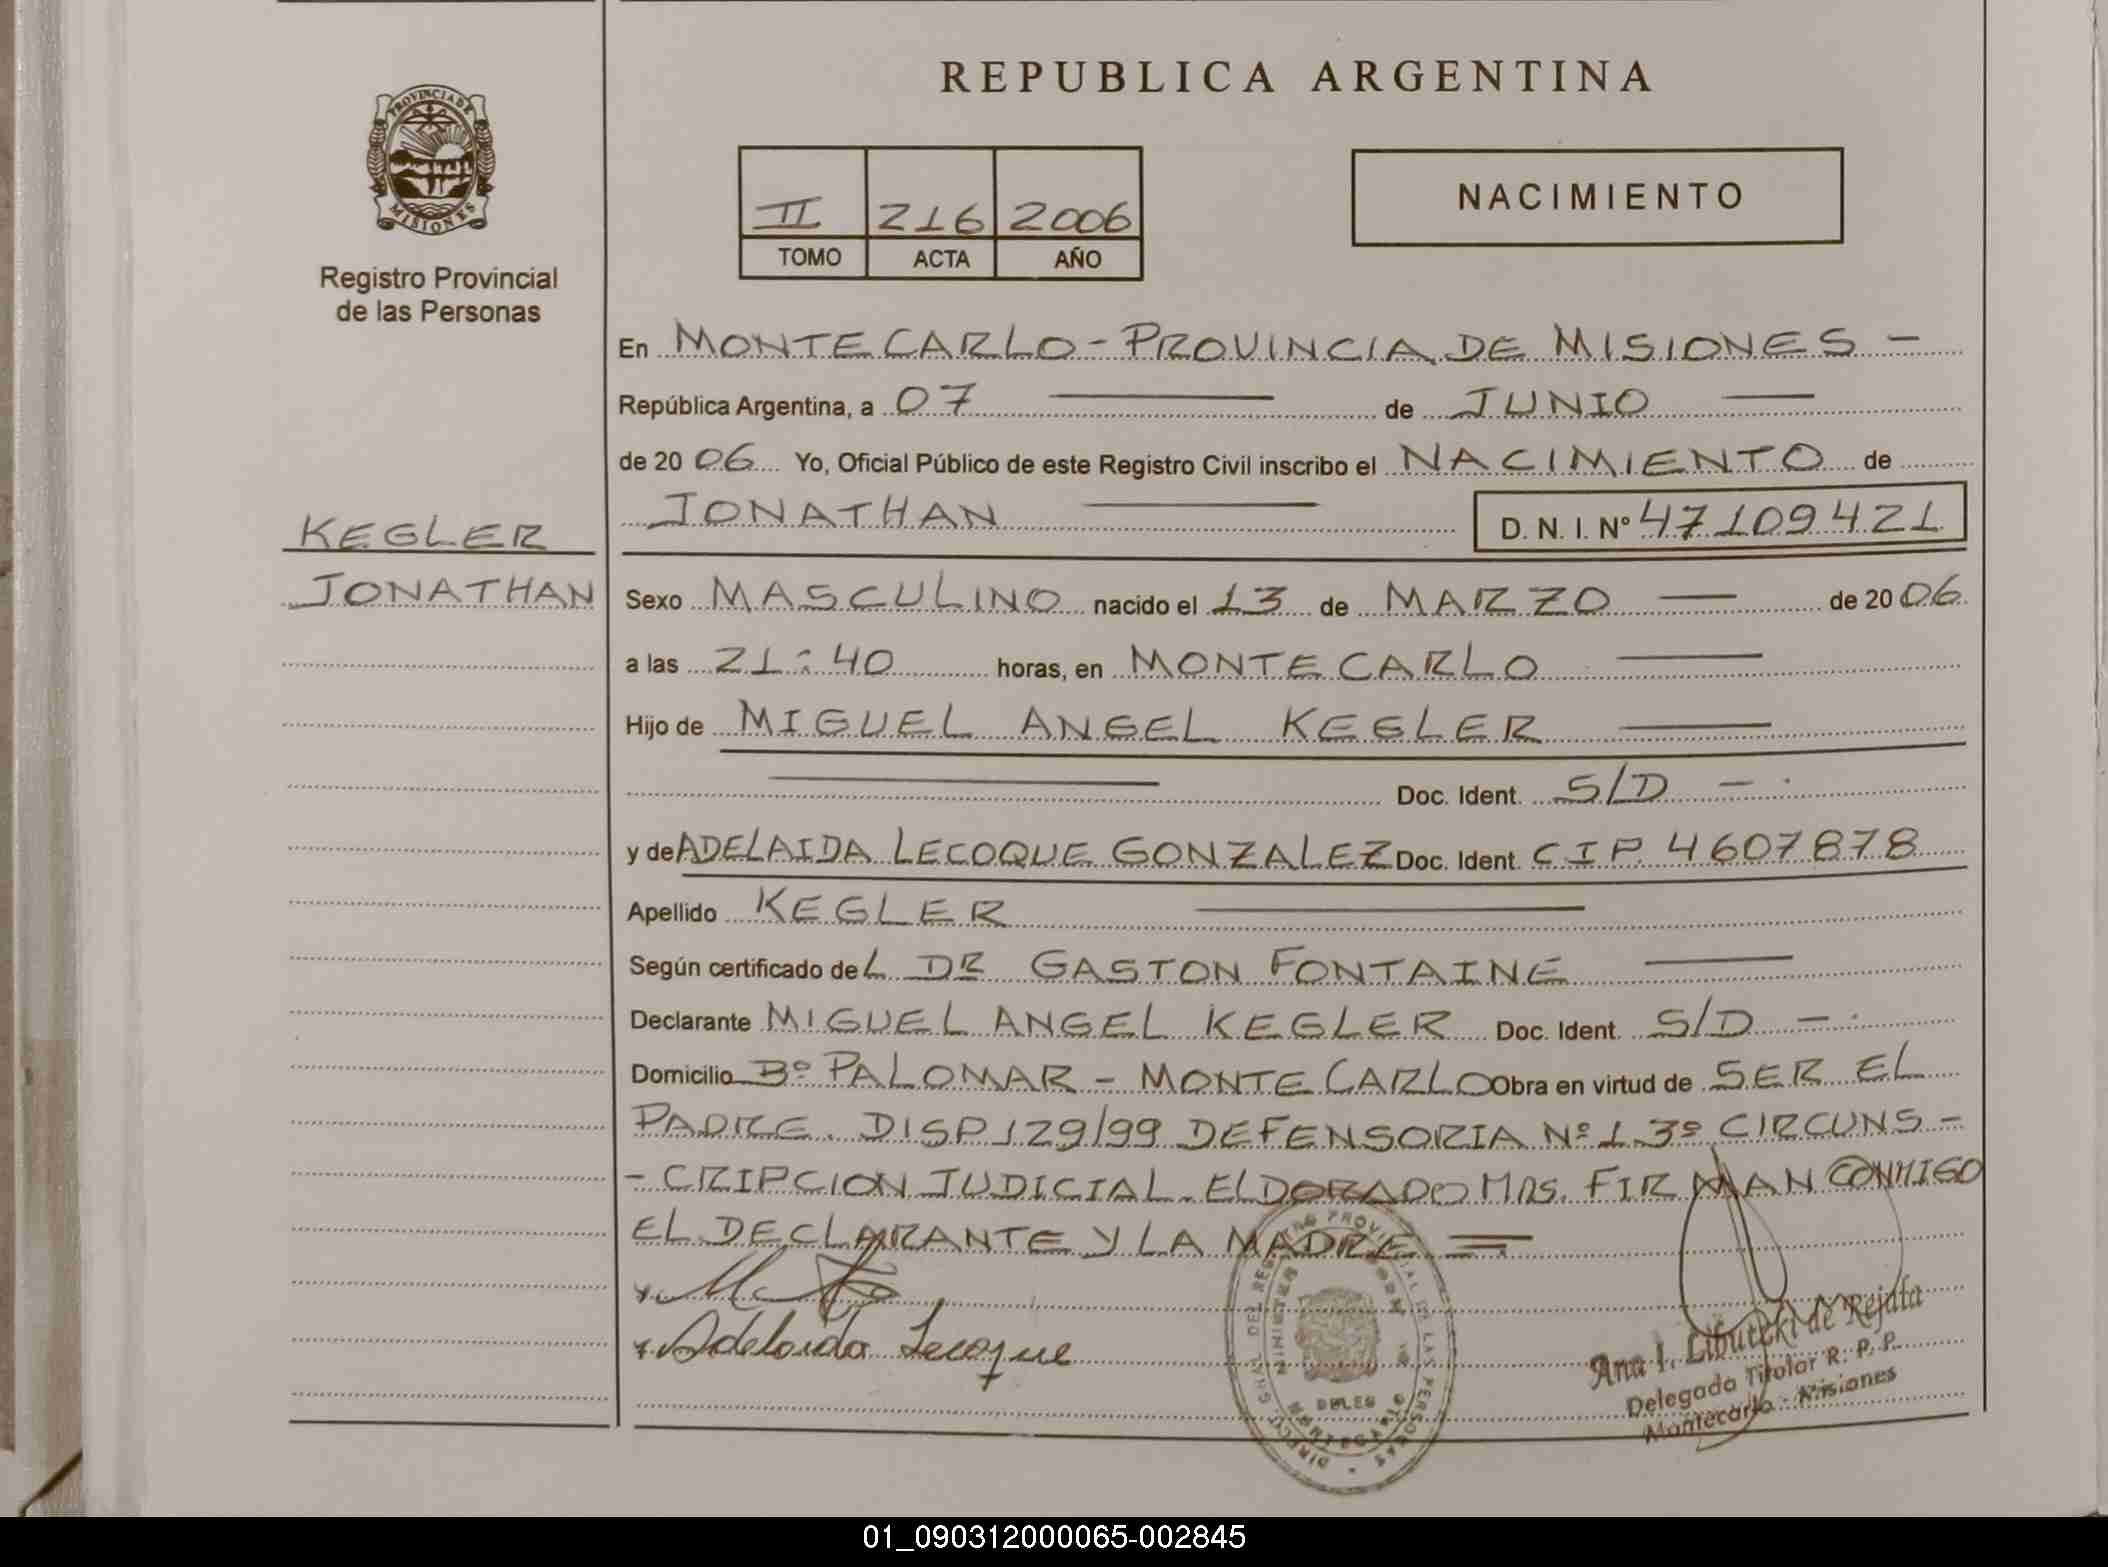 REPUBLICA ARGENTINA
PROVINCIA DE
MISIONES
Registro Provincial
de las Personas
II 216 2006
TOMO ACTA AÑO
NACIMIENTO
En MONTECARLO - PROVINCIA DE MISIONES -
República Argentina, a 07 de JUNIO
de 2006 Yo, Oficial Público de este Registro Civil inscribo el NACIMIENTO de
JONATHAN D. N. I. Nº 47109421
KEGLER
JONATHAN
Sexo MASCULINO nacido el 13 de MARZO de 2006
a las 21:40 horas, en MONTECARLO
Hijo de MIGUEL ANGEL KEGLER
Doc. Ident. S/D -.
y de ADELAIDA LECOQUE GONZALEZ Doc. Ident. CIP 4607878
Apellido KEGLER
Según certificado del DR GASTON FONTAINE
Declarante MIGUEL ANGEL KEGLER Doc. Ident. S/D -.
Domicilio Bº PALOMAR - MONTECARLO Obra en virtud de SER EL
PADRE. DISP 129/99 DEFENSORIA Nº 1 3º CIRCUNS-
-CRIPCION JUDICIAL. ELDORADO Mns. FIRMAN CONMIGO
EL DECLARANTE Y LA MADRE =
Adelaida Lecoque
Ana I. de Rejala
Delegada Titular R. P. P.
Montecarlo - Misiones
01_090312000065-002845